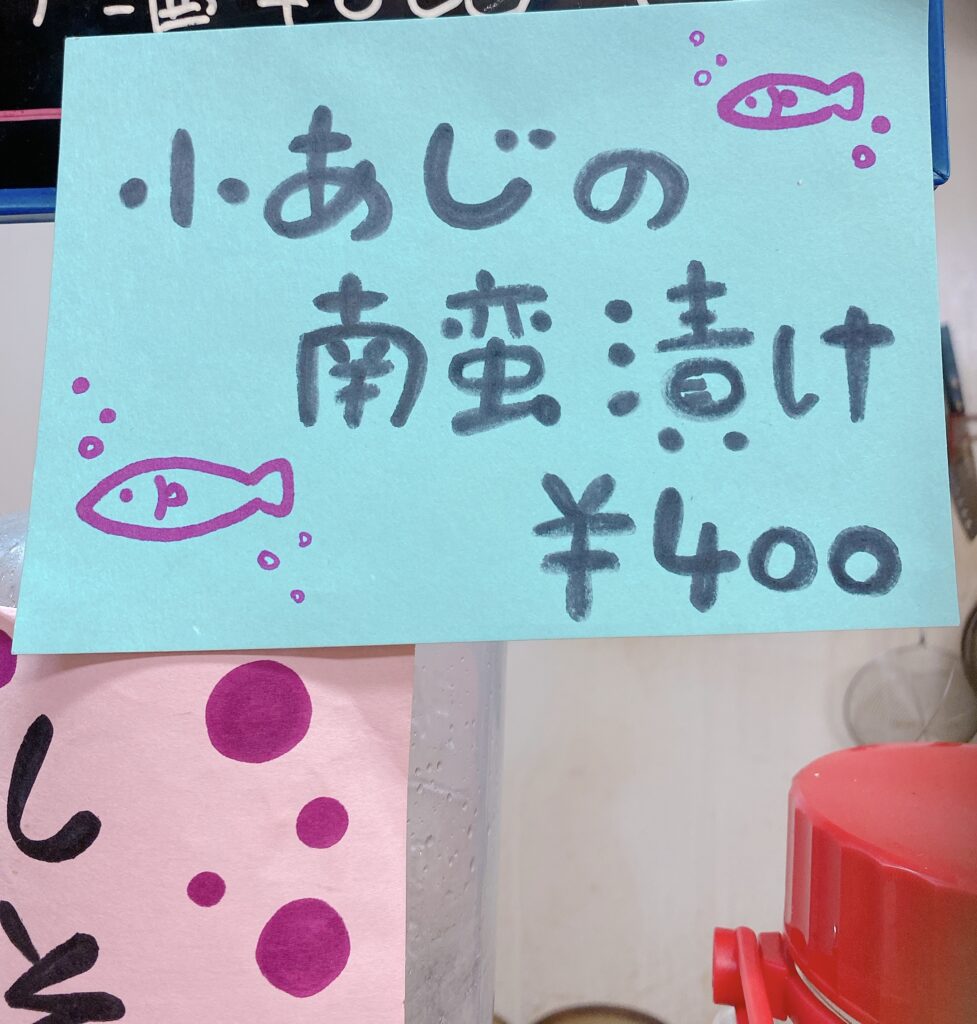 小あじの
南蛮漬け
¥400
し